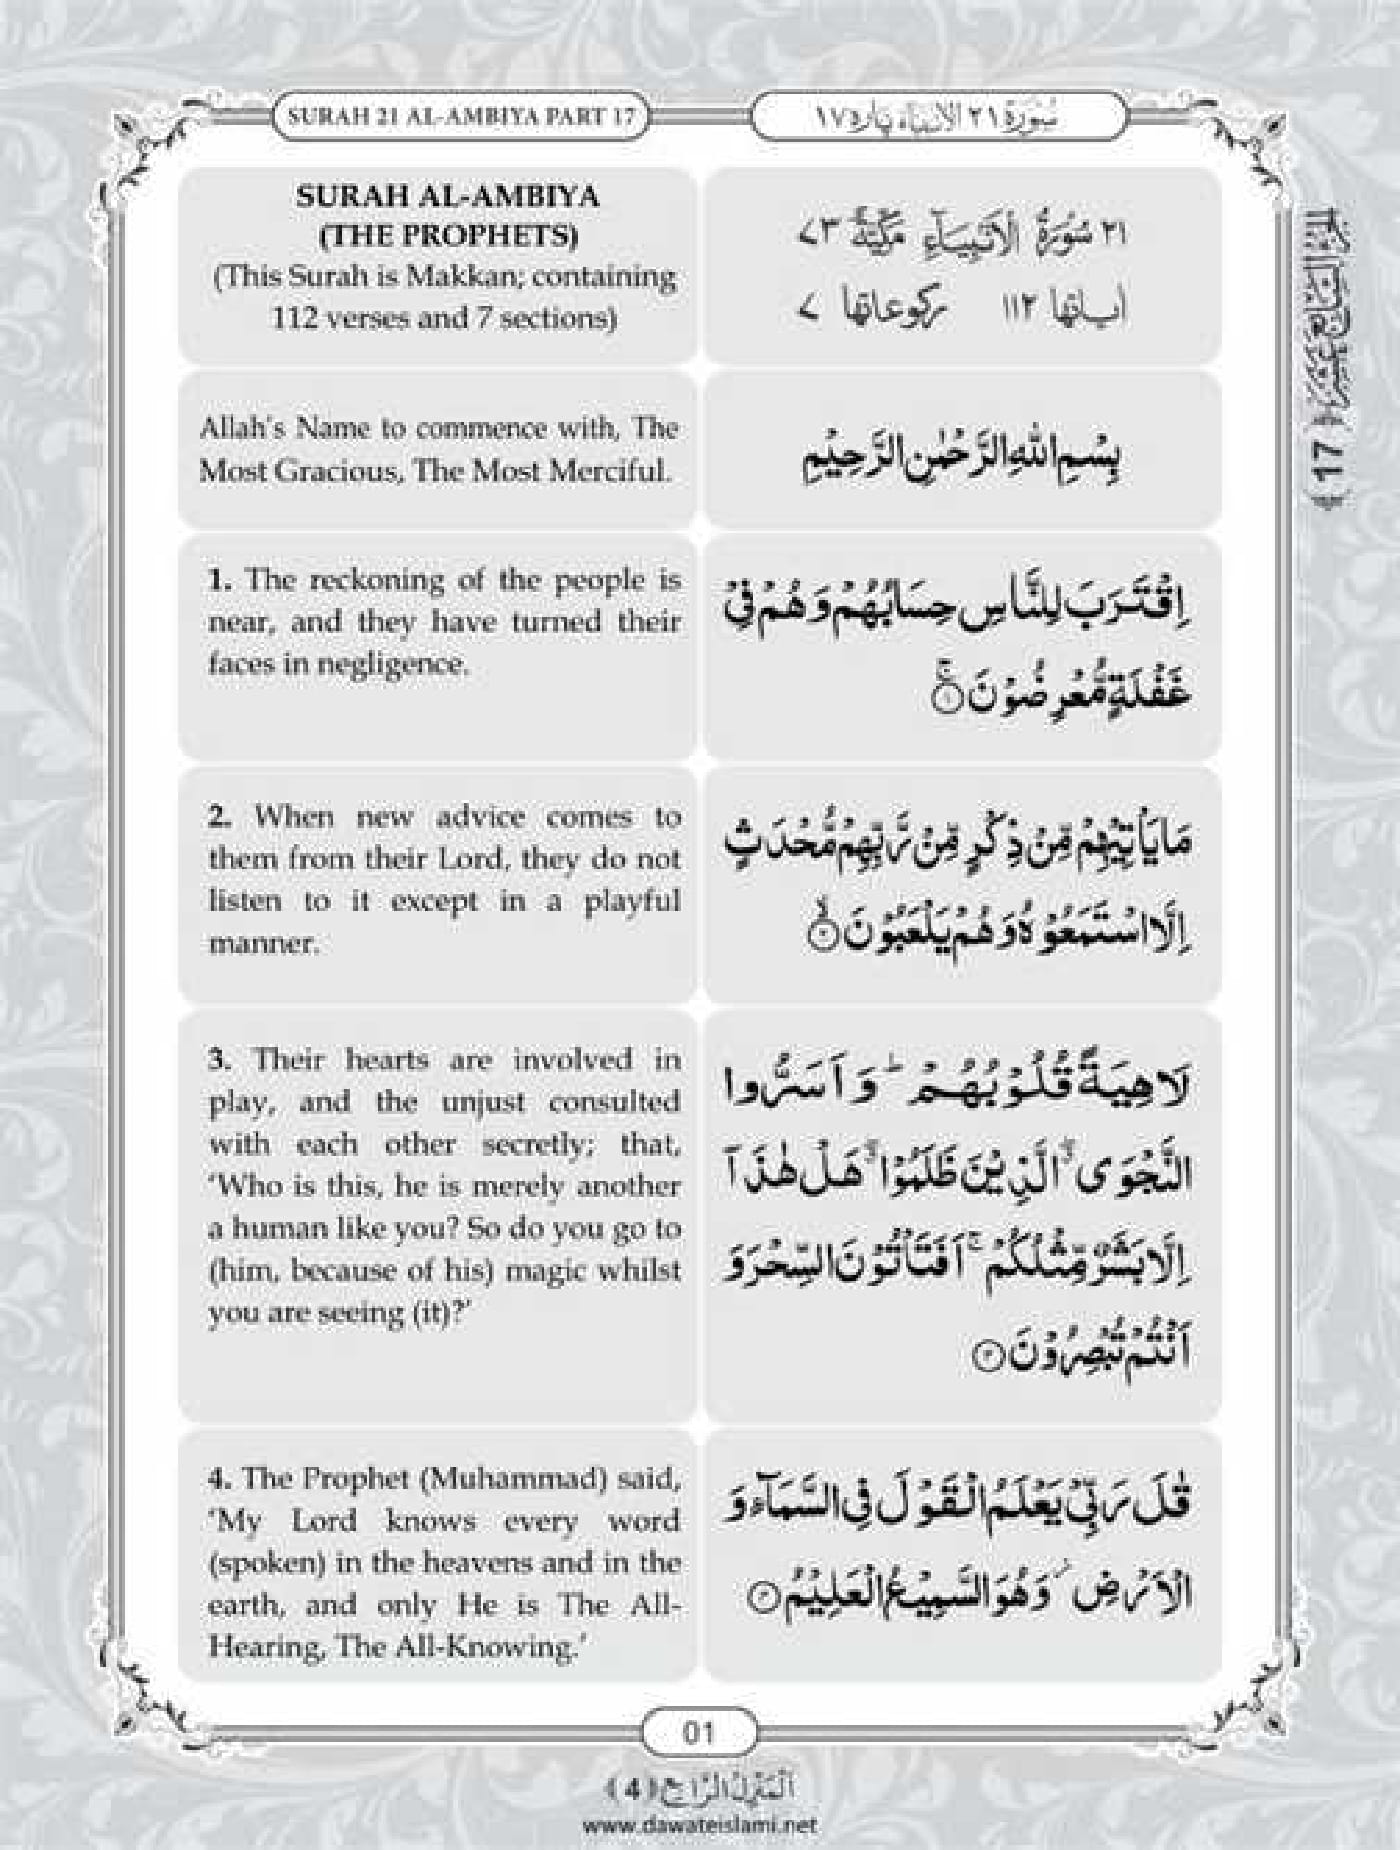 SURAH 21 AL-AMBIYA PART 17
سُوْرَة ٢١ الانبیاء پارہ ١٧
SURAH AL-AMBIYA
(THE PROPHETS)
(This Surah is Makkan; containing
112 verses and 7 sections)
٢١ سُوْرَةُ الْاَنْبِيَآءِ مَكِّيَّةٌ ٧٣
اٰیاتها ١١٢ رکوعاتها ٧
Allah's Name to commence with, The
Most Gracious, The Most Merciful.
بِسْمِ اللّٰهِ الرَّحْمٰنِ الرَّحِيْمِ
1. The reckoning of the people is
near, and they have turned their
faces in negligence.
اِقْتَرَبَ لِلنَّاسِ حِسَابُهُمْ وَ هُمْ فِيْ
غَفْلَةٍ مُّعْرِضُوْنَ ۚ﴿۱﴾
2. When new advice comes to
them from their Lord, they do not
listen to it except in a playful
manner.
مَا يَاْتِيْهِمْ مِّنْ ذِكْرٍ مِّنْ رَّبِّهِمْ مُّحْدَثٍ
اِلَّا اسْتَمَعُوْهُ وَ هُمْ يَلْعَبُوْنَ ۙ﴿۲﴾
3. Their hearts are involved in
play, and the unjust consulted
with each other secretly; that,
'Who is this, he is merely another
a human like you? So do you go to
(him, because of his) magic whilst
you are seeing (it)?'
لَاهِيَةً قُلُوْبُهُمْ ؕ وَ اَسَرُّوا
النَّجْوَى ۖۗ الَّذِيْنَ ظَلَمُوْا ۖۗ هَلْ هٰذَاۤ
اِلَّا بَشَرٌ مِّثْلُكُمْ ۚ اَفَتَاْتُوْنَ السِّحْرَ وَ
اَنْتُمْ تُبْصِرُوْنَ ﴿۳﴾
4. The Prophet (Muhammad) said,
'My Lord knows every word
(spoken) in the heavens and in the
earth, and only He is The All-
Hearing, The All-Knowing.'
قٰلَ رَبِّيْ يَعْلَمُ الْقَوْلَ فِي السَّمَآءِ وَ
الْاَرْضِ ؗ وَ هُوَ السَّمِيْعُ الْعَلِيْمُ ﴿۴﴾
اَلْجُزْءُ السَّابِعَ عَشَرَ ﴿17﴾
01
اَلْمَنْزِلُ الرَّابِعُ ﴿4﴾
www.dawateislami.net